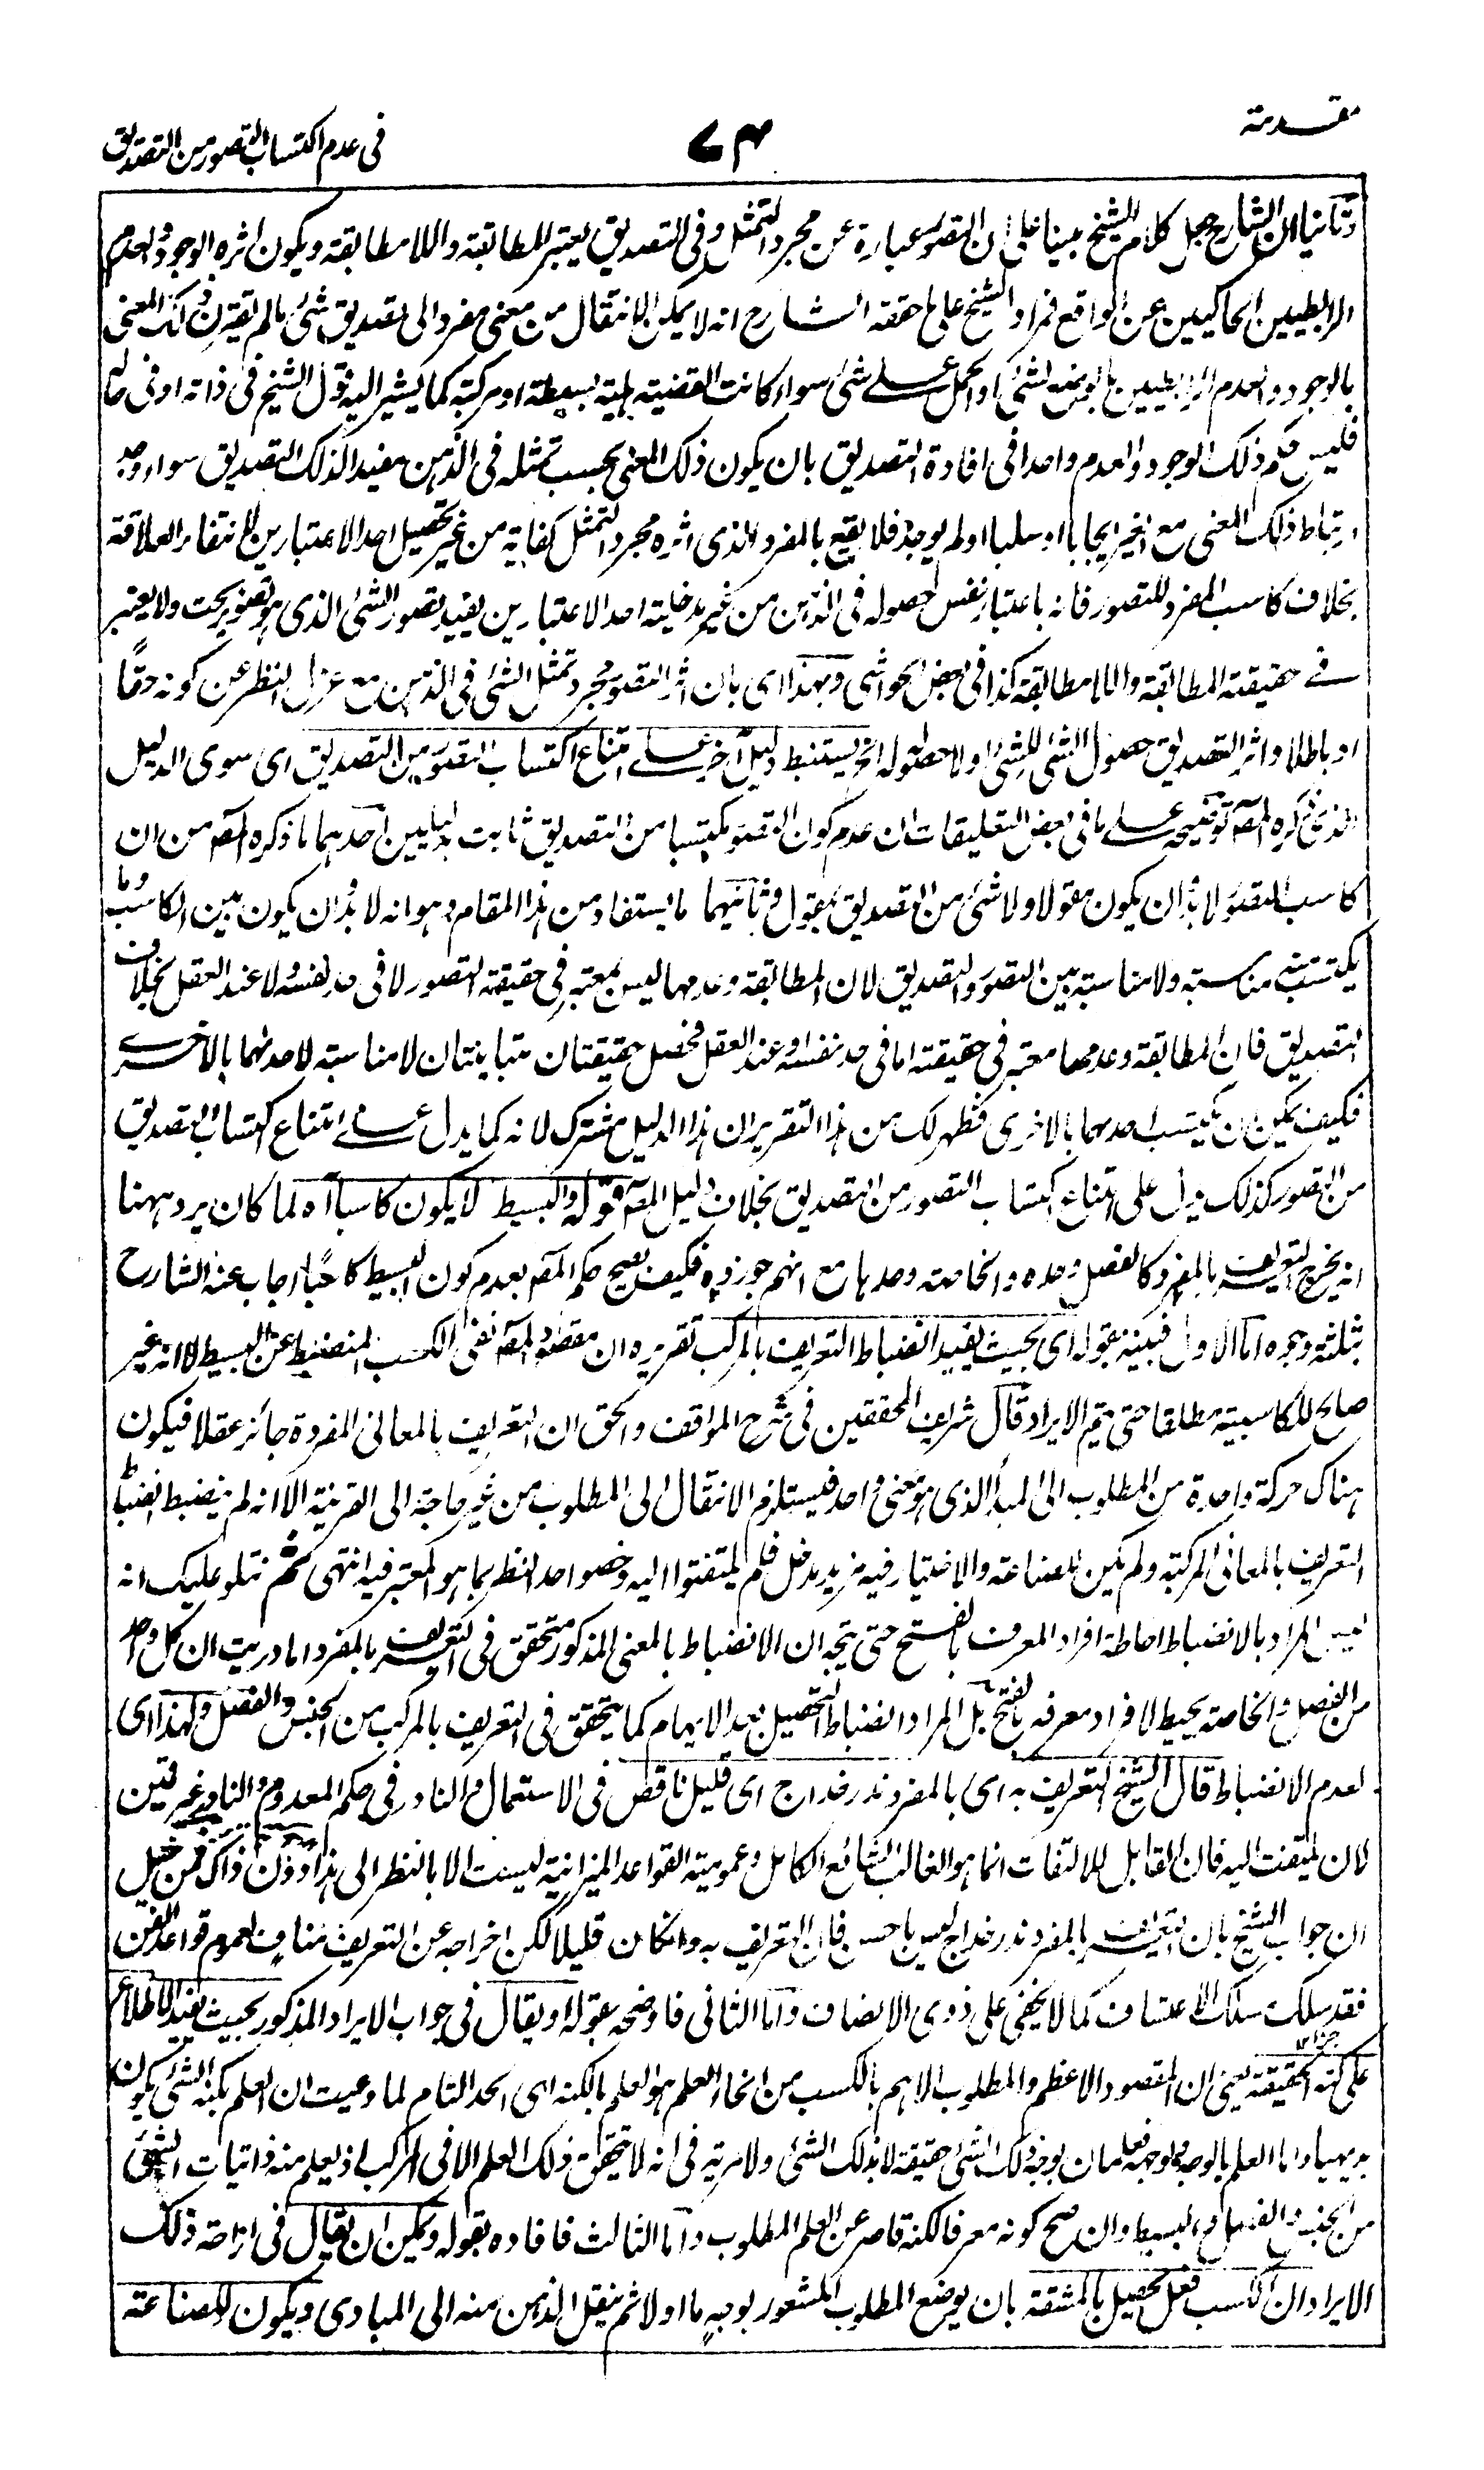 مقدمة
٧٤
فى عدم اكتساب التصور من التصديق
وثانيا ان الشارح جعل كلام الشيخ مبينا على ان التصور عبارة عن مجرد التمثل وفى التصديق يعتبر المطابقة واللا مطابقة ويكون اثره الوجود والعدم
الرابطيين الحاكيين عن الواقع فمراد الشيخ على ما حققه الشارح انه لا يمكن الانتقال من معنى مفرد الى تصديق شئ مالم يقترن ذلك المعنى
بالوجود والعدم الرابطيين لشئ او الحمل على شئ سواء كانت القضية هلية بسيطة او مركبة كما يشير اليه قول الشيخ فى ذاته او فى حاله
فليس حكم ذلك الوجود والعدم واحدا فى افادة التصديق بان يكون ذلك المعنى بحسب تمثله فى الذهن مفيدا لذلك التصديق سواء وجد
ارتباط ذلك المعنى مع الخبر ايجابا او سلبا او لم يوجد فلا يقع بالمفرد الذى اثره مجرد التمثل كفاية من غير تحصيل احد الاعتبارين لانتفاء العلاقة
بخلاف كاسب المفرد للتصور فانه باعتبار نفس حصوله فى الذهن من غير مدخلية احد الاعتبارين يفيد تصور الشئ الذى هو تصور بحت ولا يعتبر
فى حقيقته المطابقة واللا مطابقة كذا فى بعض الحواشى وبهذا اى بان اثر التصور مجرد تمثل الشئ فى الذهن مع عزل النظر عن كونه حقًا
او باطلا واثر التصديق حصول الشئ للشئ او لا حصوله الخ يستنبط دليل آخر على امتناع اكتساب التصور من التصديق اى سوى الدليل
الذى ذكره المصـ توضيحه على ما فى بعض التعليقات ان عدم كون التصور مكتسبا من التصديق ثابت بدليلين احدهما ما ذكره المصـ من ان
كاسب التصور لا بد ان يكون مقولا ولا شئ من التصديق بمقول وثانيهما ما يستفاد من هذا المقام وهو انه لا بد ان يكون بين الكاسب وما
يكتسب مناسبة ولا مناسبة بين التصور والتصديق لان المطابقة وعدمها ليس بمعتبر فى حقيقة التصور لا فى حد نفسه ولا عند العقل بخلاف
التصديق فان المطابقة وعدمها معتبر فى حقيقته اما فى حد نفسه او عند العقل فحصل حقيقتان متباينتان لا مناسبة لاحدهما بالاخرى
فكيف يمكن ان يكتسب احدهما بالاخرى فظهر لك من هذا التقرير ان هذا الدليل مشترك لانه كما يدل على امتناع اكتساب التصديق
من التصور كذلك يدل على امتناع اكتساب التصور من التصديق بخلاف دليل المصـ قوله والبسيط لا يكون كاسبا آه لما كان يرد ههنا
انه يخرج التعريف بالمفرد كالفصل وحده والخاصة وحدها مع انهم جوزوه فكيف يصح حكم المصـ بعدم كون البسيط كاسبًا اجاب عنه الشارح
بثلثة وجوه اما الاول فبينه بقوله اى بحيث يفيد انضباط التعريف بالمركب تقريره ان مقصود المصـ نفى الكسب المنضبط عن البسيط لا انه غير
صالح للكاسبية مطلقا حتى يتم الايراد قال شريف المحققين فى شرح المواقف والحق ان التعريف بالمعانى المفردة جائز عقلا فيكون
هناك حركة واحدة من المطلوب الى المبدأ الذى هو معنى واحد فيستلزم الانتقال الى المطلوب من غير حاجة الى القرينة الا انه لم ينضبط انضباط
التعريف بالمعانى المركبة ولم يكن للصناعة والاختيار فيه مزيد مدخل فلم يلتفتوا اليه وخصوا حد النظر بما هو المعتبر فيه انتهى ثم نتلو عليك انه
ليس المراد بالانضباط احاطة افراد المعرف بالفتح حتى يتجه ان الانضباط بالمعنى المذكور متحقق فى التعريف بالمفرد اما دريت ان كل واحد
من الفصل والخاصة يحيط لافراد معرفه بالفتح بل المراد انضباط التحصيل بعد الابهام كما يتحقق فى التعريف بالمركب من الجنس والفصل ولهذا اى
لعدم الانضباط قال الشيخ التعريف به اى بالمفرد نذر خداج اى قليل ناقص فى الاستعمال والنادر فى حكم المعدوم والنادر غير قمين
لان يلتفت اليه فان القابل للالتفات انما هو الغالب الشائع الكامل وعمومية القواعد الميزانية ليست الا بالنظر الى هذا دون ذاك فمن خيل
ان جواب الشيخ بان التعريف بالمفرد نذر خداج ليس باحسن فان التعريف به وانكان قليلا لكن اخراجه عن التعريف مناف لعموم قواعد الفن
فقد سلك مسلك الاعتساف كما لا يخفى على ذوى الانصاف واما الثانى فاوضحه بقوله او يقال فى جواب الايراد المذكور بحيث يفيد الاطلاع
على كنه الحقيقة يعنى ان المقصود الاعظم والمطلوب الاهم بالكسب من انحاء العلم هو العلم بالكنه اى الحد التام لما وعيت ان العلم بكنه الشئ يكون
بديهيا واما العلم بالوجه وبوجهه فعلمان بوجه ذلك الشئ حقيقة لا بذلك الشئ ولا مرية فى انه لا يتحقق ذلك العلم الا فى المركب اذ يعلم منه ذاتيات الشئ
من الجنس والفصل والبسيط وان صح كونه معرفا لكنه قاصر عن العلم المطلوب واما الثالث فافاده بقوله ويمكن ان يقال فى ازاحة ذلك
الايراد ان الكسب فعل يحصل بالمشقة بان يوضع المطلوب المشعور بوجه ما اولا ثم ينقل الذهن منه الى المبادى ويكون للصناعة